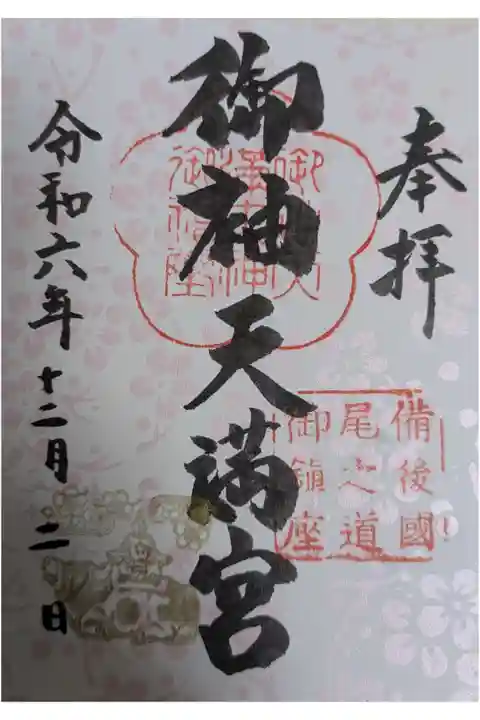 奉拝
備後國
尾之道
御鎮座
御袖天満宮
令和六年十二月二日